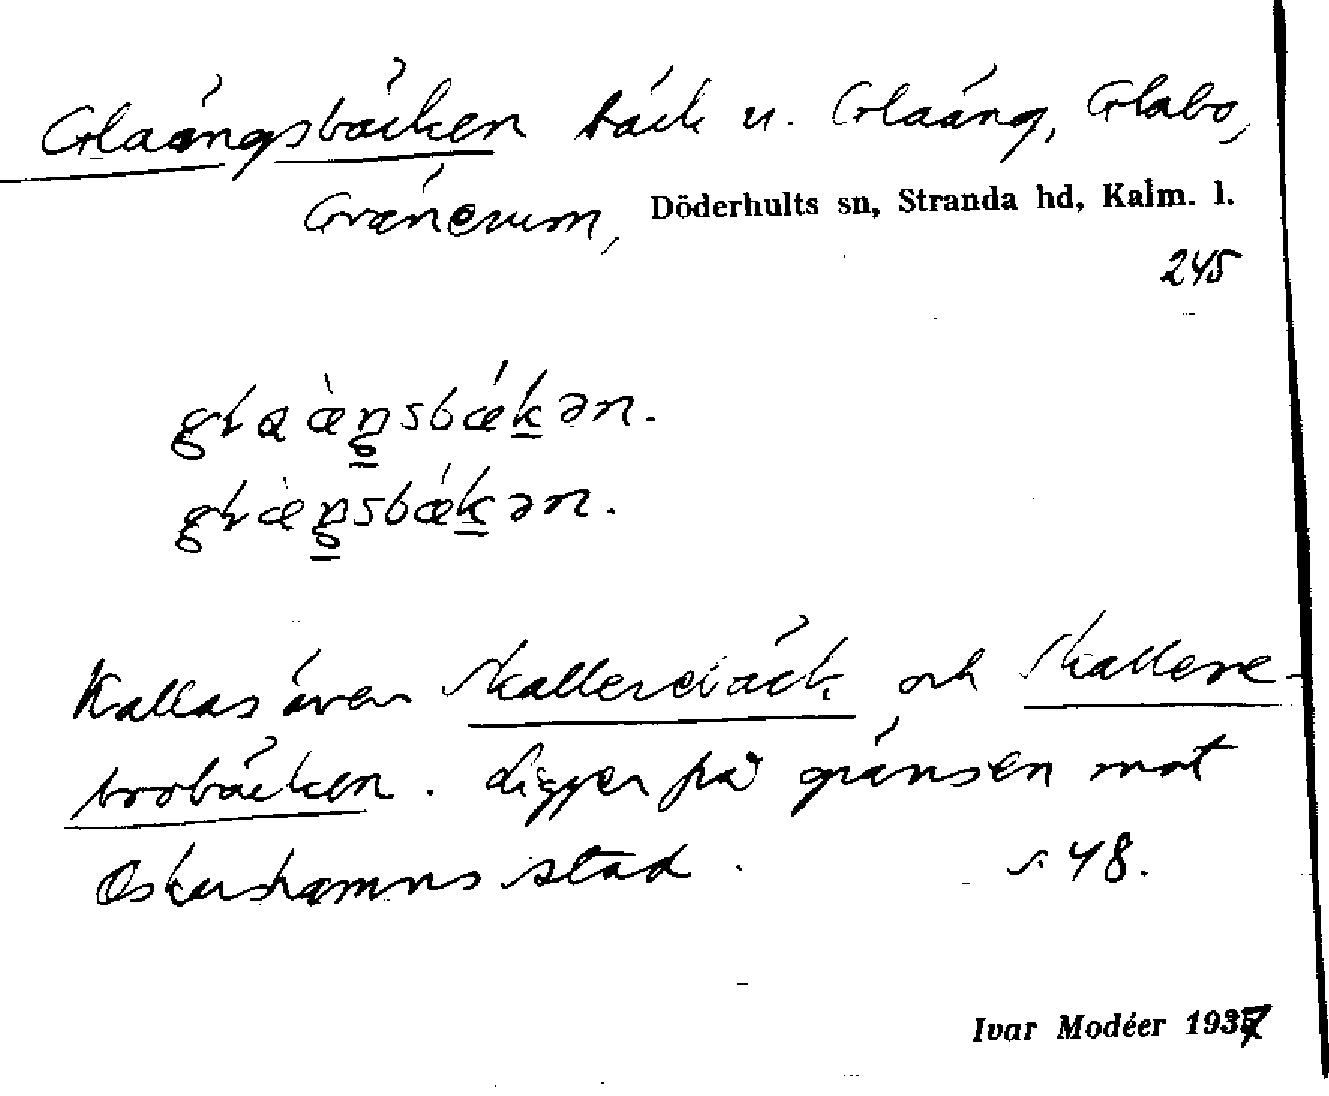 Glaängsbäcken bäck u. Glaäng, Glabo,
Gränerum, Döderhults sn, Stranda hd, Kalm. l.
245
glaæŋsbækən.
glæŋsbækən.
Kallas även Skallerebäck och Skallere-
brobäcken. Ligger på gränsen mot
Oskarshamns stad. s. 48.
Ivar Modéer 1937